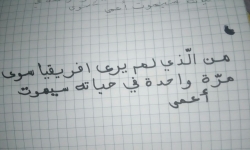 من الّذي لم يرى افريقيا سوى
مرّة واحدة في حياته سيموت
أعمى